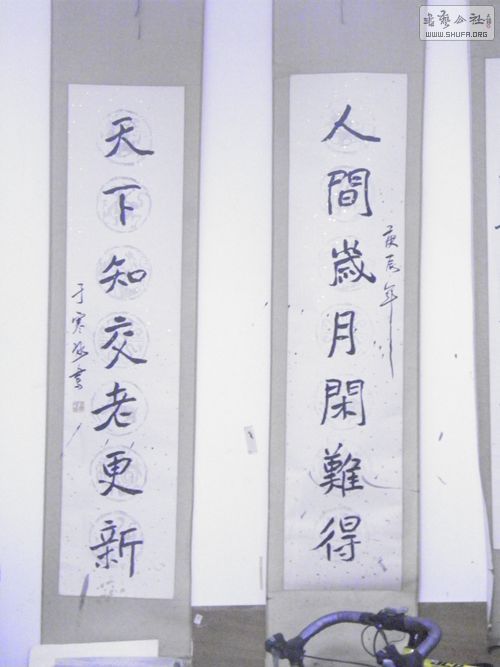 人間歲月閑難得
庚辰年
天下知交老更新
于寒
書藝公社
WWW.SHUFA.ORG